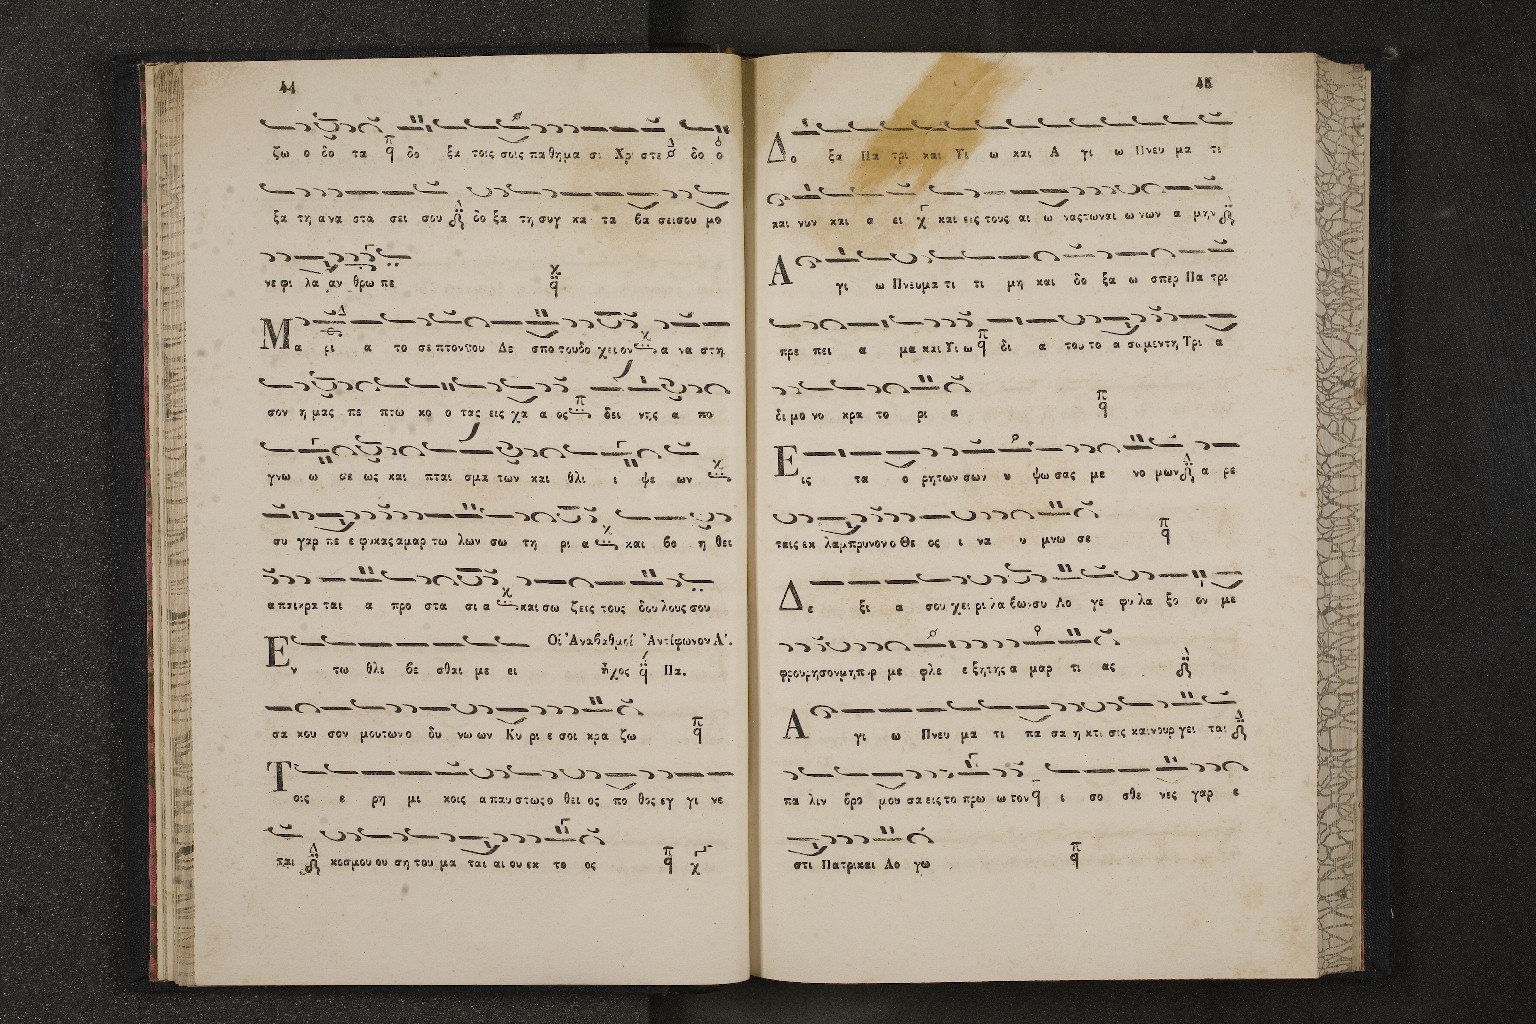 44
ζω ο δο τα δο ξα τοις σοις πα θημα σι Χρι στε δο ο
ξα τη α να στα σει σου δο ξα τη συγ κα τα βα σει σου μο
νε φι λα αν θρω πε
Μα ρι α το σε πτον του Δε σπο του δο χει ον α να στη
σον η μας πε πτω κο ο τας εις χα α ος δει νης α πο
γνω ω σε ως και πται σμα των και θλι ι ψε ων
συ γαρ πε ε φυ κας α μαρ τω λων σω τη ρι α και βο η θει
α και κρα ται α προ στα σι α και σω ζεις τους δου λους σου
Οἱ Ἀναβαθμοί Ἀντίφωνον Α΄.
Εν τω θλι βε σθαι με ει ἦχος Πα.
σα κου σον μου των ο δυ νω ων Κυ ρι ε σοι κρα ζω
Τοις ε ρη μι κοις α παυ στως ο θει ος πο θος εγ γι νε
ται κοσμου ου ση του μα ται αι ου εκ το ος
45
Δο ξα Πα τρι και Υι ω και Α γι ω Πνευ μα τι
και νυν και α ει και εις τους αι ω νας των αι ω νων α μην
Α γι ω Πνευμα τι τι μη και δο ξα ω σπερ Πα τρι
πρε πει α μα και Υι ω δι α του το α σω μεν τη Τρι α
δι μο νο κρα το ρι α
Εις τα ο ρη των σων υ ψω σας με νο μων α ρε
ταις εκ λαμπρυνον ο Θε ος ι να υ μνω σε
Δε ξι α σου χει ρι λα βων συ Λο γε φυ λα ξο ον με
φρουρησον μη πυρ με φλε ε ξη της α μαρ τι ας
Α γι ω Πνευ μα τι πα σα η κτι σις και νουρ γει ται
πα λιν δρο μου σα εις το πρω ω τον ι σο σθε νες γαρ ε
στι Πατρι και Λο γω